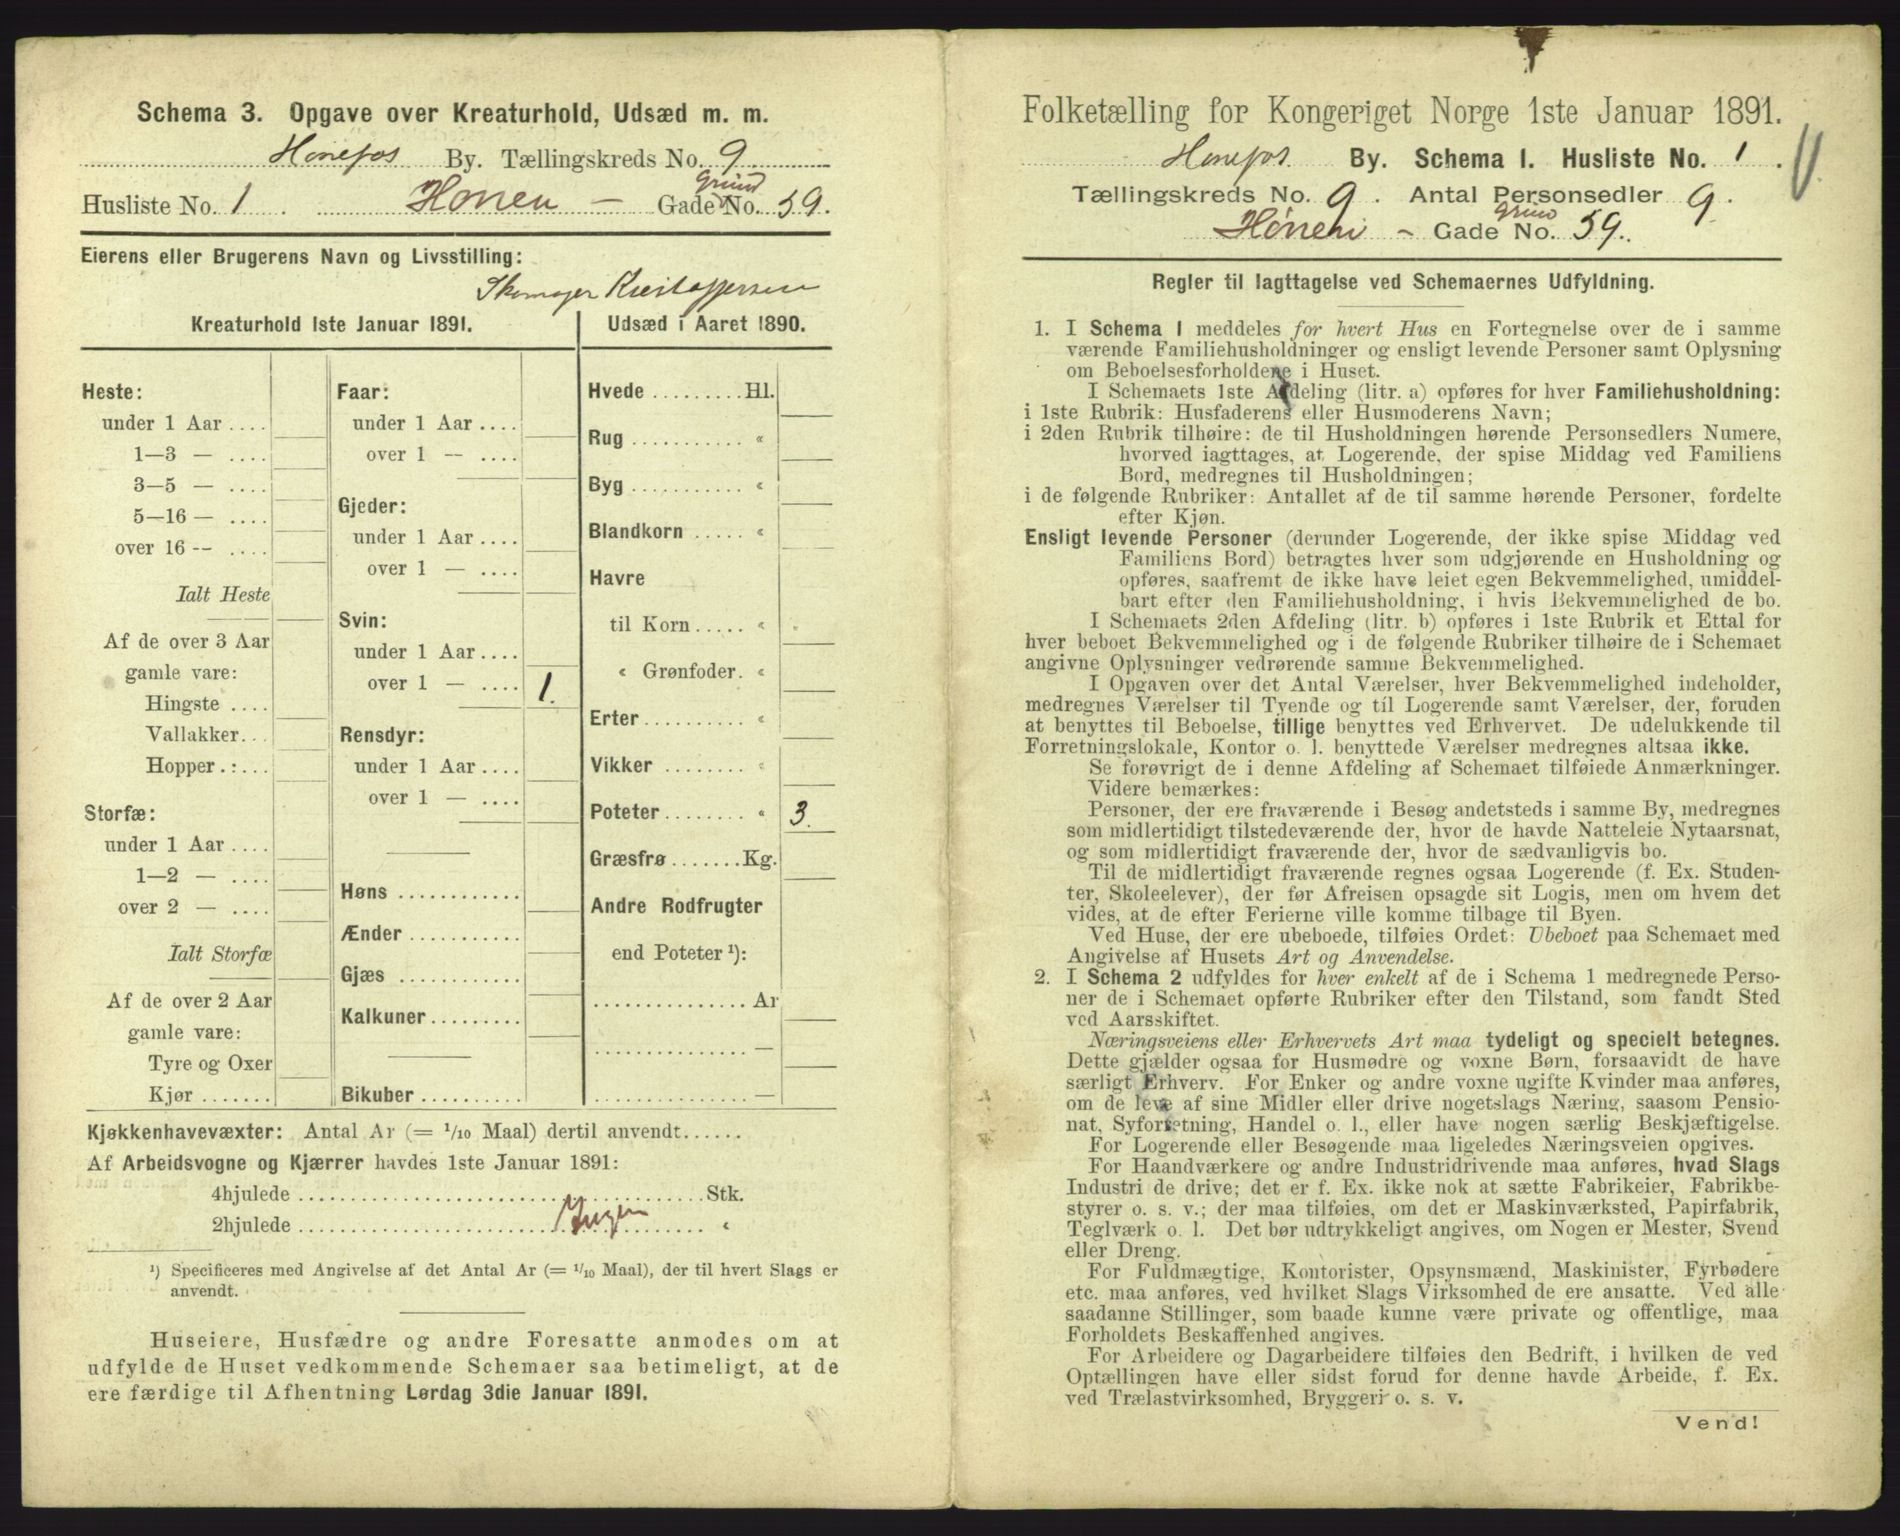 Schema 3. Opgave over Kreaturhold, Udsæd m. m.
Hønefos By. Tællingskreds No. 9
Husliste No. 1. Hønen — Gade No. 59.
Grund
Eierens eller Brugerens Navn og Livsstilling:
Skomager Kristoffersen
Kreaturhold 1ste Januar 1891.
Heste:
under 1 Aar ....
1—3 — ....
3—5 — ....
5—16 — ....
over 16 -- ....
Ialt Heste
Af de over 3 Aar
gamle vare:
Hingste ....
Vallakker...
Hopper.:...
Storfæ:
under 1 Aar ....
1—2 — ....
over 2 — ....
Ialt Storfæ
Af de over 2 Aar
gamle vare:
Tyre og Oxer
Kjør .......
Faar:
under 1 Aar ....
over 1 -- ....
Gjeder:
under 1 Aar ....
over 1 — ....
Svin:
under 1 Aar....
over 1 — .... 1.
Rensdyr:
under 1 Aar....
over 1 — ....
Høns ............
Ænder ...........
Gjæs ............
Kalkuner.........
Bikuber ..........
Udsæd i Aaret 1890.
Hvede .........Hl.
Rug ........... «
Byg ........... «
Blandkorn ..... «
Havre
til Korn..... «
« Grønfoder. «
Erter.......... «
Vikker ........ «
Poteter........ « 3.
Græsfrø .......Kg.
Andre Rodfrugter
end Poteter ¹):
................Ar
................—
................—
Kjøkkenhavevæxter: Antal Ar (= 1/10 Maal) dertil anvendt......
Af Arbeidsvogne og Kjærrer havdes 1ste Januar 1891:
4hjulede ........................................Stk.
2hjulede ............ Ingen ............ «
¹) Specificeres med Angivelse af det Antal Ar (= 1/10 Maal), der til hvert Slags er
anvendt.
Huseiere, Husfædre og andre Foresatte anmodes om at
udfylde de Huset vedkommende Schemaer saa betimeligt, at de
ere færdige til Afhentning Lørdag 3die Januar 1891.
Folketælling for Kongeriget Norge 1ste Januar 1891.
Hønefos. By. Schema I. Husliste No. 1.
Tællingskreds No. 9. Antal Personsedler 9.
Grund
Hønen — Gade No. 59.
Regler til Iagttagelse ved Schemaernes Udfyldning.
1. I Schema I meddeles for hvert Hus en Fortegnelse over de i samme
værende Familiehusholdninger og ensligt levende Personer samt Oplysning
om Beboelsesforholdene i Huset.
I Schemaets 1ste Afdeling (litr. a) opføres for hver Familiehusholdning:
i 1ste Rubrik: Husfaderens eller Husmoderens Navn;
i 2den Rubrik tilhøire: de til Husholdningen hørende Personsedlers Numere,
hvorved iagttages, at Logerende, der spise Middag ved Familiens
Bord, medregnes til Husholdningen;
i de følgende Rubriker: Antallet af de til samme hørende Personer, fordelte
efter Kjøn.
Ensligt levende Personer (derunder Logerende, der ikke spise Middag ved
Familiens Bord) betragtes hver som udgjørende en Husholdning og
opføres, saafremt de ikke have leiet egen Bekvemmelighed, umiddel-
bart efter den Familiehusholdning, i hvis Bekvemmelighed de bo.
I Schemaets 2den Afdeling (litr. b) opføres i 1ste Rubrik et Ettal for
hver beboet Bekvemmelighed og i de følgende Rubriker tilhøire de i Schemaet
angivne Oplysninger vedrørende samme Bekvemmelighed.
I Opgaven over det Antal Værelser, hver Bekvemmelighed indeholder,
medregnes Værelser til Tyende og til Logerende samt Værelser, der, foruden
at benyttes til Beboelse, tillige benyttes ved Erhvervet. De udelukkende til
Forretningslokale, Kontor o. l. benyttede Værelser medregnes altsaa ikke.
Se forøvrigt de i denne Afdeling af Schemaet tilføiede Anmærkninger.
Videre bemærkes:
Personer, der ere fraværende i Besøg andetsteds i samme By, medregnes
som midlertidigt tilstedeværende der, hvor de havde Natteleie Nytaarsnat,
og som midlertidigt fraværende der, hvor de sædvanligvis bo.
Til de midlertidigt fraværende regnes ogsaa Logerende (f. Ex. Studen-
ter, Skoleelever), der før Afreisen opsagde sit Logis, men om hvem det
vides, at de efter Ferierne ville komme tilbage til Byen.
Ved Huse, der ere ubeboede, tilføies Ordet: Ubeboet paa Schemaet med
Angivelse af Husets Art og Anvendelse.
2. I Schema 2 udfyldes for hver enkelt af de i Schema 1 medregnede Perso-
ner de i Schemaet opførte Rubriker efter den Tilstand, som fandt Sted
ved Aarsskiftet.
Næringsveiens eller Erhvervets Art maa tydeligt og specielt betegnes.
Dette gjælder ogsaa for Husmødre og voxne Børn, forsaavidt de have
særligt Erhverv. For Enker og andre voxne ugifte Kvinder maa anføres,
om de leve af sine Midler eller drive nogetslags Næring, saasom Pensio-
nat, Syforretning, Handel o. l., eller have nogen særlig Beskjæftigelse.
For Logerende eller Besøgende maa ligeledes Næringsveien opgives.
For Haandværkere og andre Industridrivende maa anføres, hvad Slags
Industri de drive; det er f. Ex. ikke nok at sætte Fabrikeier, Fabrikbe-
styrer o. s. v.; der maa tilføies, om det er Maskinværksted, Papirfabrik,
Teglværk o. l. Det bør udtrykkeligt angives, om Nogen er Mester, Svend
eller Dreng.
For Fuldmægtige, Kontorister, Opsynsmænd, Maskinister, Fyrbødere
etc. maa anføres, ved hvilket Slags Virksomhed de ere ansatte. Ved alle
saadanne Stillinger, som baade kunne være private og offentlige, maa
Forholdets Beskaffenhed angives.
For Arbeidere og Dagarbeidere tilføies den Bedrift, i hvilken de ved
Optællingen have eller sidst forud for denne havde Arbeide, f. Ex.
ved Trælastvirksomhed, Bryggeri o. s. v.
Vend!